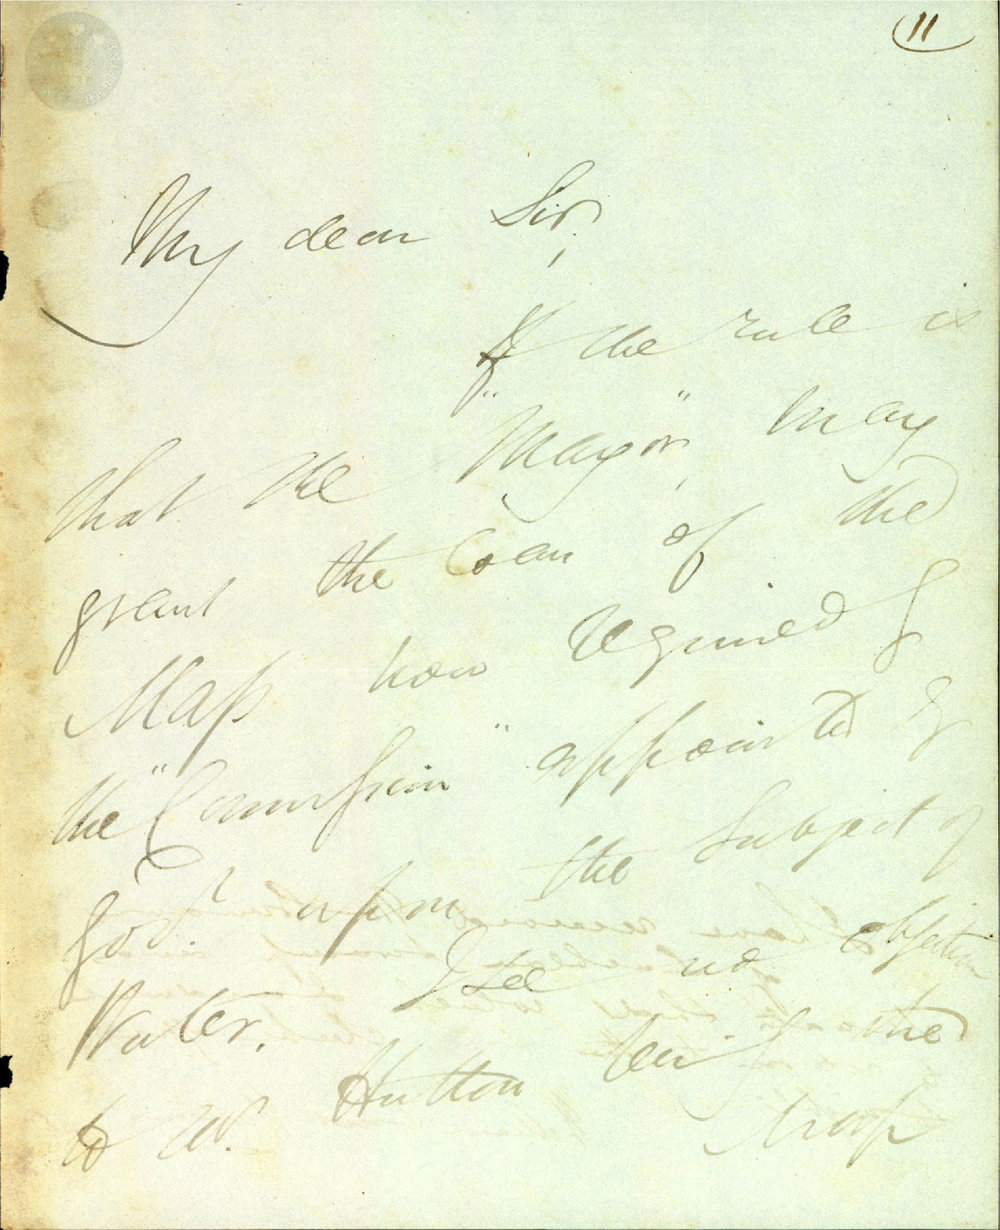 11
My dear Sir,
If the rule is
that the "Mayor" may
grant the loan of the
Map now required by
the "Commission" appointed by
Govt. upon the subject of
Water. I see no objection
to Mr. Hutton being the